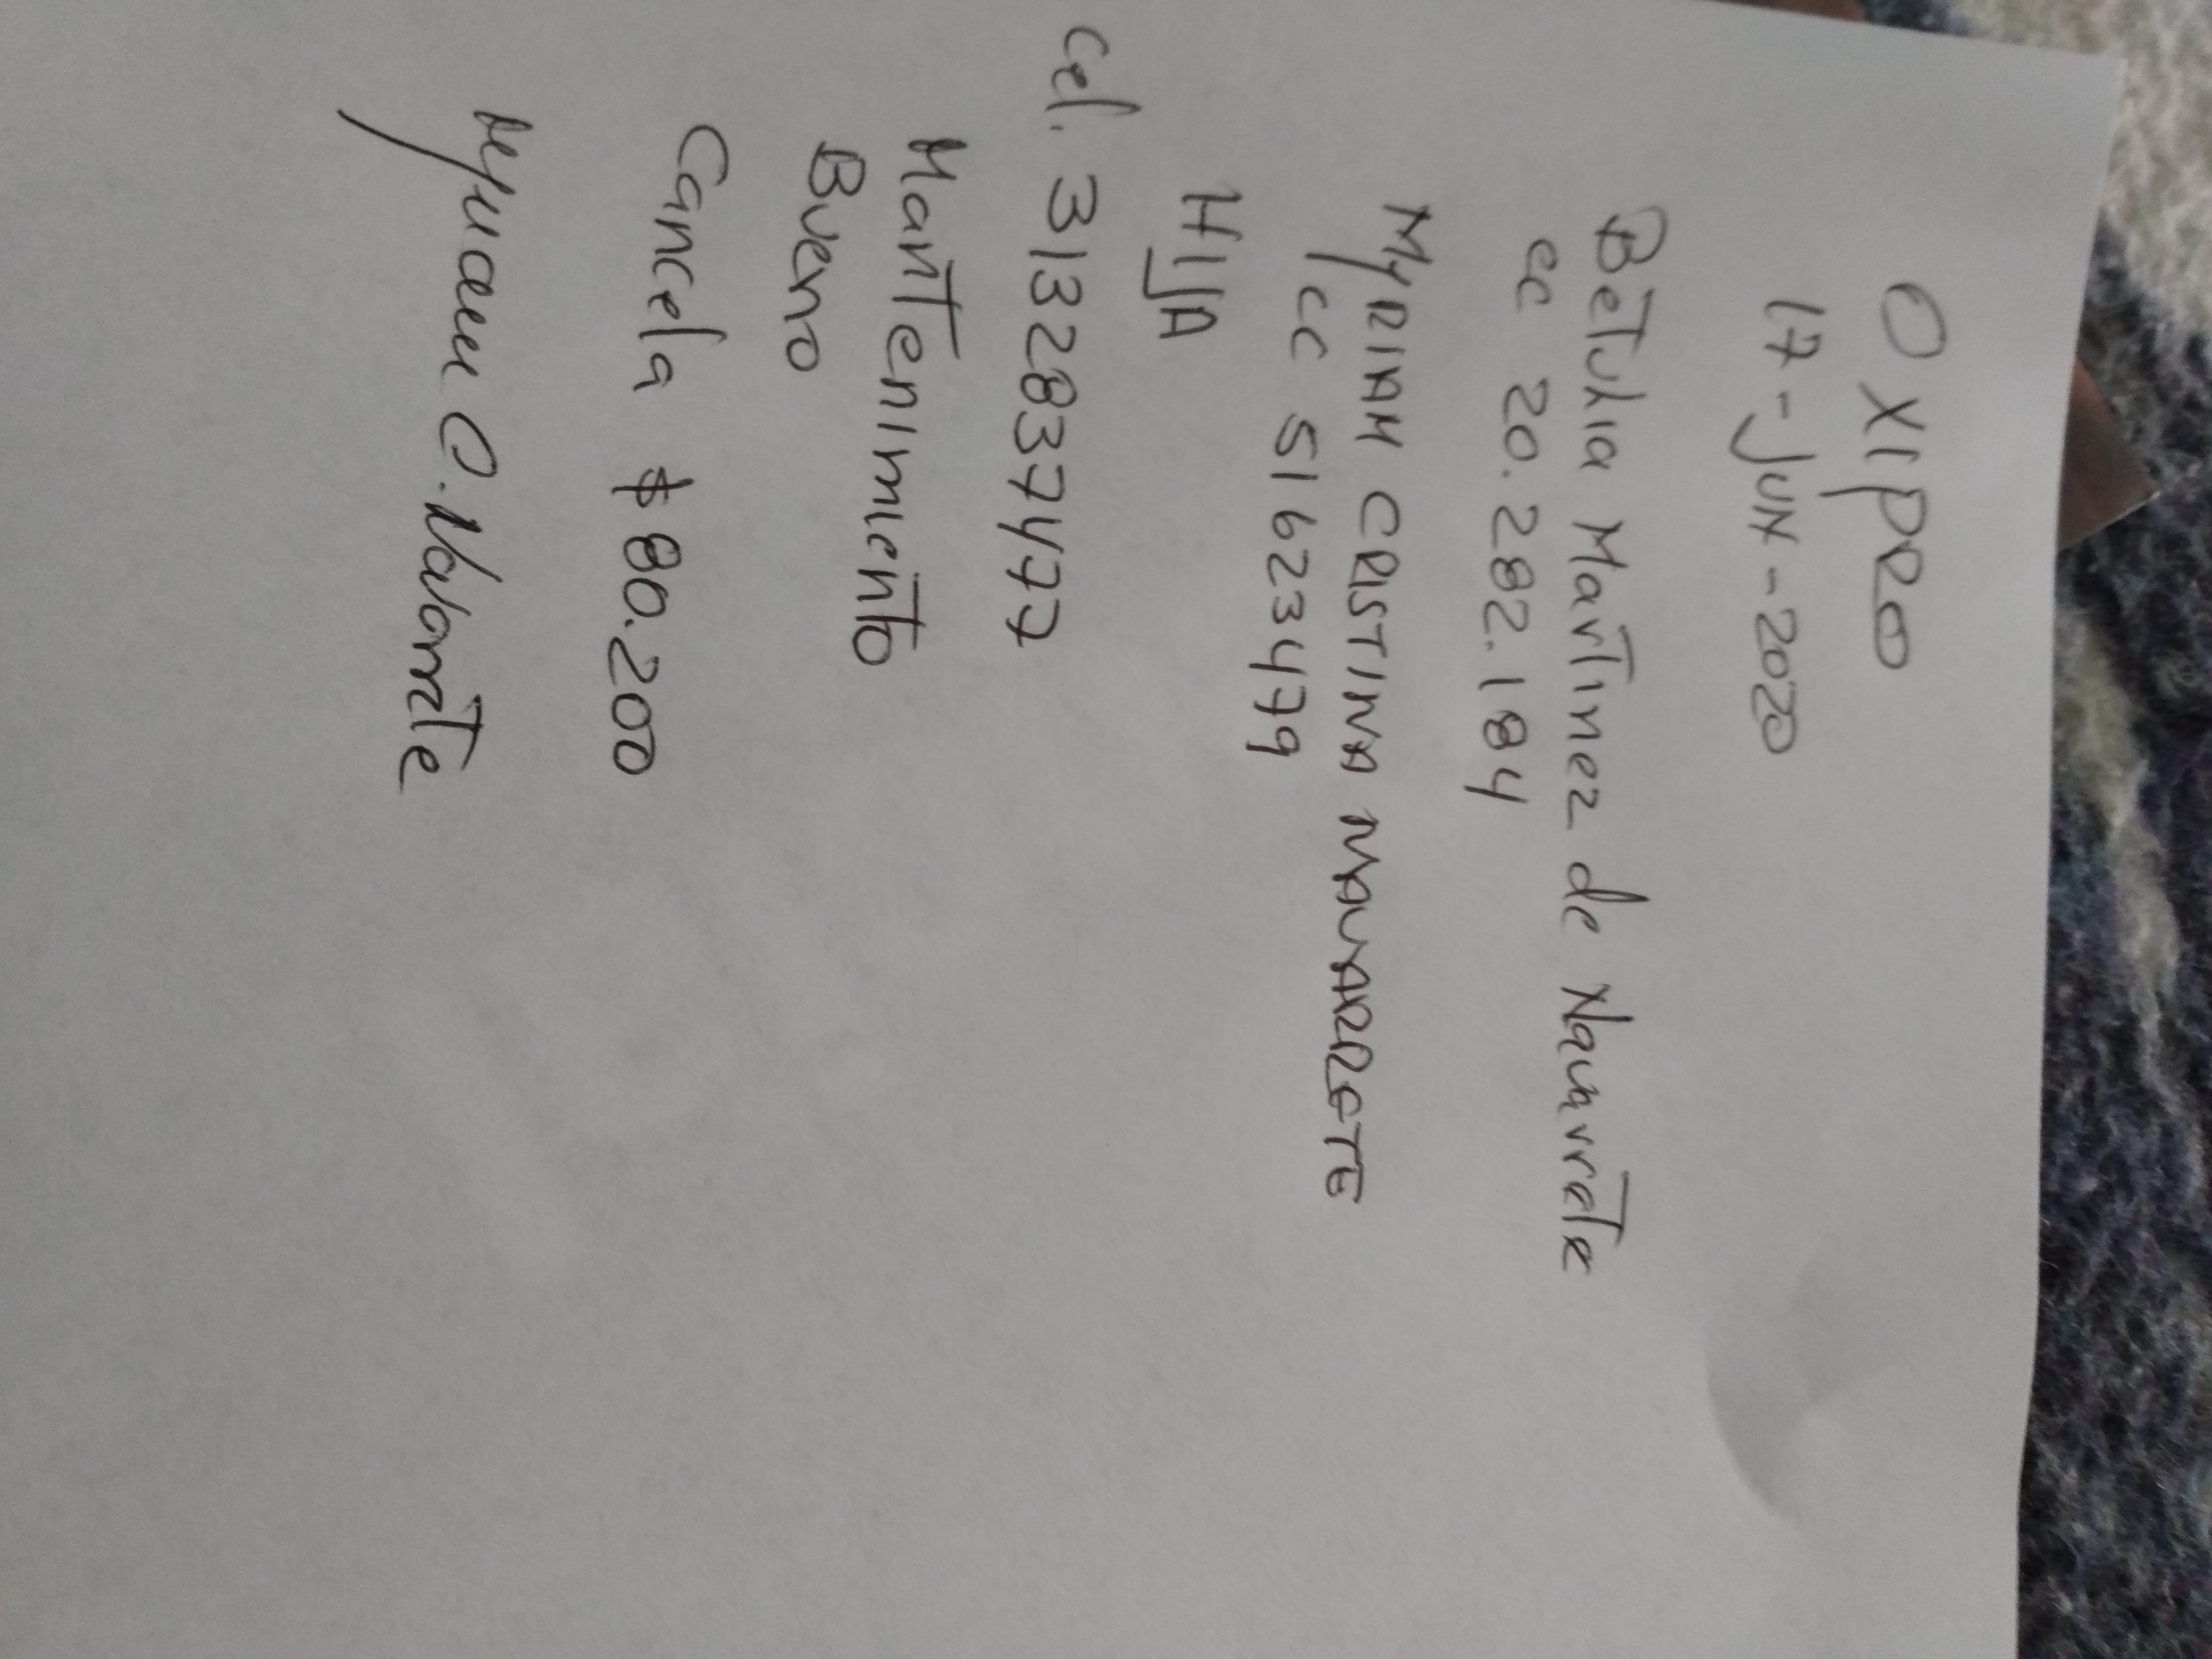 OXIPRO
17-JUN-2020
Betulia Martinez de Navarrete
cc 20.282.184
MYRIAM CRISTINA NAVARRETE
cc 51623479
HIJA
cel. 3132837477
Mantenimiento
Bueno
Cancela $80.200
Myriam C. Navarrete